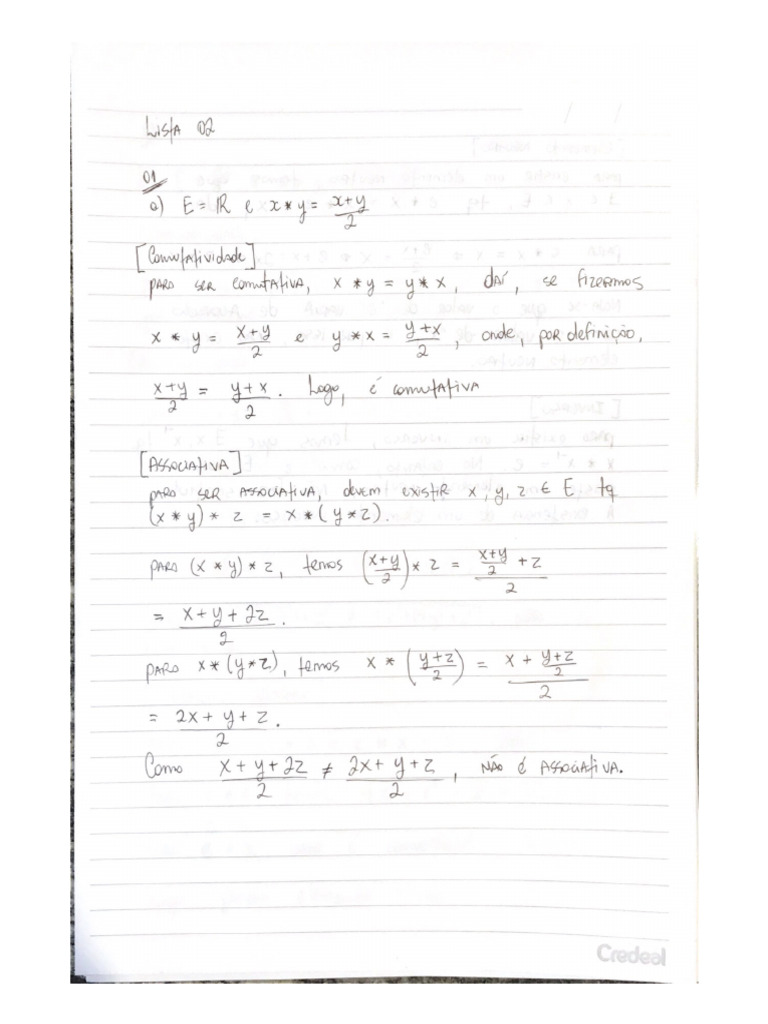 Lista 02
01
a) E = ℝ e x * y = (x+y)/2
[Comutatividade]
para ser comutativa, x * y = y * x, daí, se fizermos
x * y = (x+y)/2 e y * x = (y+x)/2, onde, por definição,
(x+y)/2 = (y+x)/2. Logo, é comutativa
[Associativa]
para ser associativa, devem existir x, y, z ∈ E, tq
(x * y) * z = x * (y * z).
para (x * y) * z, temos ((x+y)/2) * z = ((x+y)/2 + z)/2
= (x + y + 2z)/2.
para x * (y * z), temos x * ((y+z)/2) = (x + (y+z)/2)/2
= (2x + y + z)/2.
Como (x + y + 2z)/2 ≠ (2x + y + z)/2, não é associativa.
Credeal